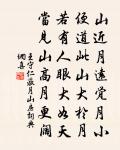 山近月遠覺月小
便道此山大於月
若有人眼大如天
當見山高月更闊
王守仁蔽月山房詞典
網喜